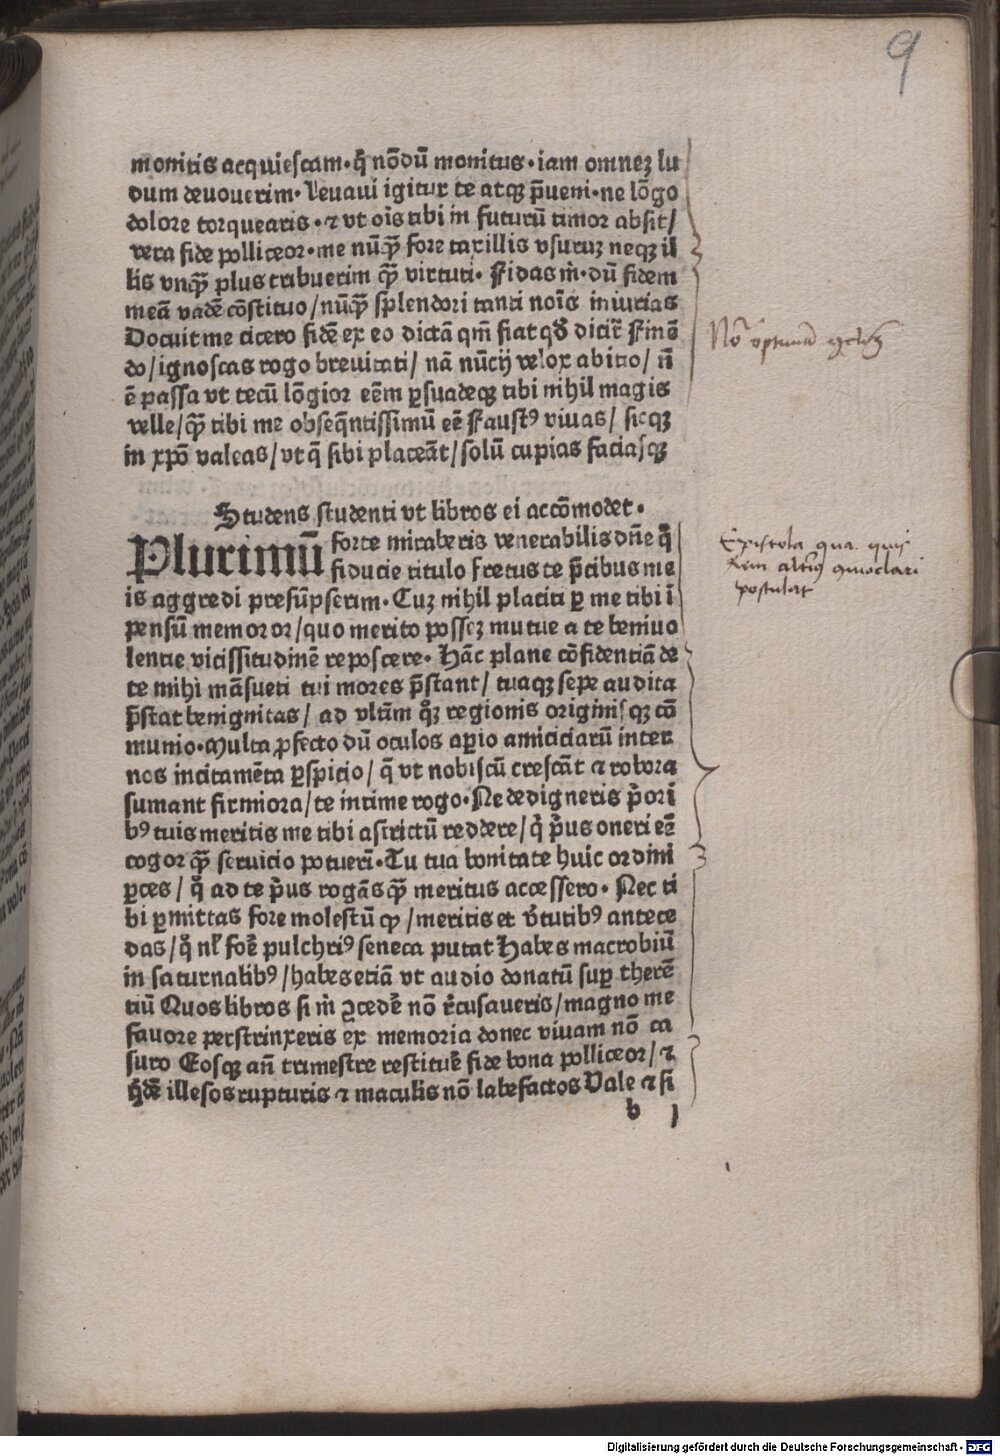 9
monitis acquiescam· q̃ nõdũ monitus· iam omnez lu
dum deuouerim· Leuaui igitur te atqz p̃ueni· ne lõgo
dolore torquearis· ⁊ vt oĩs tibi in futurũ timor absit/
vera fide polliceor· me nũq̃ fore taxillis vsuruz neqz il
lis vnq̃ plus tribuerim q̃ virtuti· Fidas m̃· dũ fidem
meã vadẽ cõstituo/ nũq̃ splendori tanti noĩs iniurias
Docuit me cicero fidẽ ex eo dictã qm̃ fiat qđ dicit̃ Finẽ
do/ ignoscas rogo breuitati/ nã nũcij velox abitio/ ñ
ẽ passa vt tecũ lõgior eẽm ꝑsuadeqz tibi nihil magis
velle/ q̃ tibi me obseq̃ntissimũ eẽ Faustꝰ viuas/ sicqz
in xp̃o valeas/ vt q̃ sibi placeãt/ solũ cupias faciasqz
Studens studenti vt libros ei accõmodet·
Plurimũ forte miraberis venerabilis dñe q̃
fiducie titulo fretus te p̃cibus me
is aggredi presũpserim· Cuz nihil placiti ꝑ me tibi ĩ
pensũ memoror/ quo merito possez mutue a te beniuo
lentie vicissitudinẽ reposcere· Hãc plane cõfidentiã de
te mihi mãsueti tui mores p̃stant/ tuaqz sepe audita
p̃stat benignitas/ ad vltim̃ q̊z regionis originisqz cõ
munio· Multa ꝓfecto dũ oculos aꝑio amiciciarũ inter
nos incitamẽta ꝑspicio/ q̃ vt nobiscũ crescãt ⁊ robora
sumant firmiora/ te intime rogo· Ne dedigneris p̃ori
bꝰ tuis meritis me tibi astrictũ reddere/ q̃ p̃us oneri eẽ
cogor q̃ seruicio potuerĩ· Tu tua bonitate huic ordini
ꝑces/ q̃ ad te p̃us rogãs q̃ meritus accessero· Nec ti
bi ꝑmittas fore molestũ ꝙ/ meritis et v̓tutibꝰ antece
das/ q̃ nl̓ forẽ pulchriꝰ seneca putat Habes macrobiũ
in saturnalibꝰ/ habes etiã vt audio donatũ suꝑ therẽ
tiũ Quos libros si m̃ ꝯcedẽ nõ r̃cusaueris/ magno me
fauore perstrinxeris ex memoria donec viuam nõ ca
suro Eosqz añ trimestre restituẽ fide bona polliceor/ ⁊
q̇dẽ illesos rupturis ⁊ maculis nõ labefactos Vale ⁊ si
b j
Epistola qua quis
rem alteriꝰ ꝯmodari
postulat
Digitalisierung gefördert durch die Deutsche Forschungsgemeinschaft - DFG